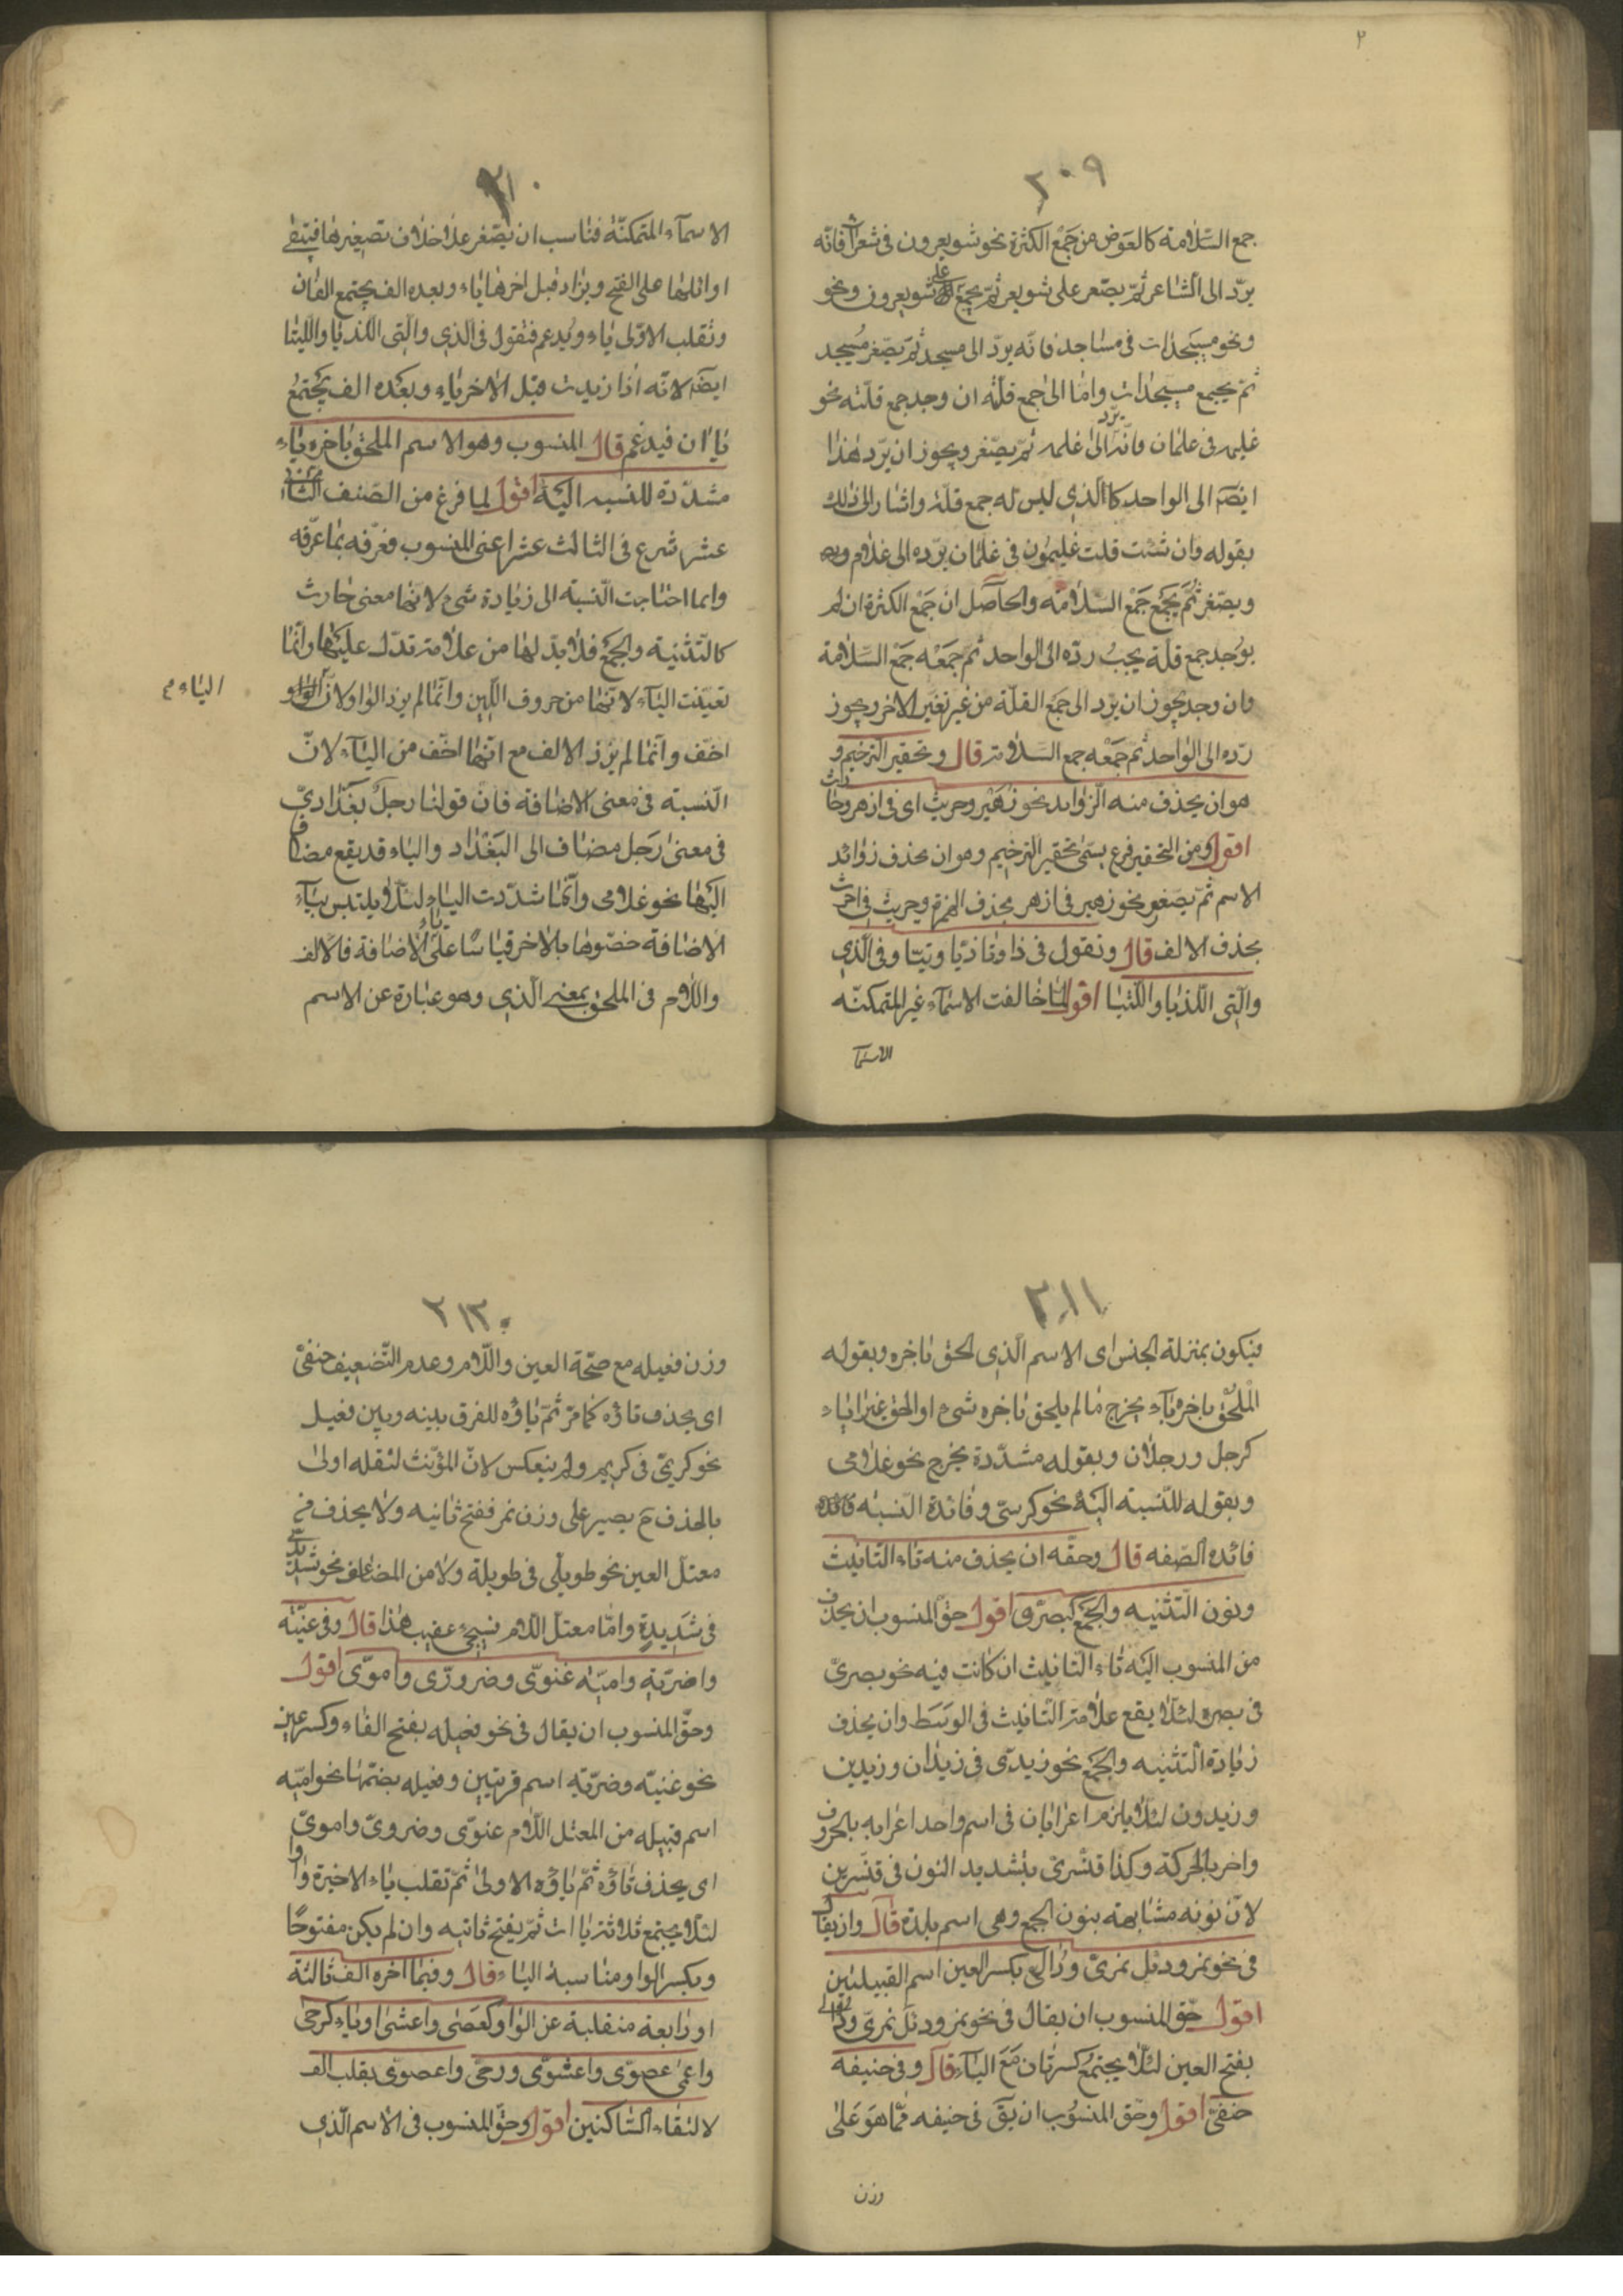 ٢
٢٠٩
جمع السّلامة كالعوض من جمع الكثرة نحو شويعرون فى شعراء فانّه
يردّ الى الشاعر ثمّ يصغّر على شويعر ثمّ يجمع على شويعرون ونحو
ونحو مسيجدات فى مساجد فانّه يردّ الى مسجد ثمّ يصغّر مُسيجد
ثمّ يجمع مسيجدات وامّا الى جمع قلّة ان وجد جمع قلّته نحو
غليمه فى غلمان فانّه يردّ الى غلمه ثمّ يصغّر ويجوز ان يردّ هذا
ايضًا الى الواحد كالّذى ليس له جمع قلّة واشار الى ذلك
بقوله وان شئت قلت غليمون فى غلمان بردّه الى غلام
ويصغّر ثمّ يجمع جمع السّلامة والحاصل ان جمع الكثرة ان لم
يوجد جمع قلة يجبُ ردّه الى الواحد ثمّ جمعه جمع السّلامة
وان وجد يجوز ان يردّ الى جمع القلّة من غير تغيّر الاخر ويجوز
ردّه الى الواحد ثمّ جمعه جمع السّلامة قال وتحقير الترخيم و
هو ان يحذف منه الزّوايد نحو زهير وحريث اى فى ازهر وحارث
اقول ومن التحقير فرع يسمّى تحقير الترخيم وهو ان يحذف زوائد
الاسم ثمّ يصغّر نحو زهير فى ازهر بحذف الهمزة وحريث فى حارث
بحذف الالف قال وتقول فى ذا وتا ذيّا وتيّا وفى الّذى
والّتى اللّذيا واللّتيا اقول لمّا خالفت الاسمآء غير المتمكنّه
الاسمآ
٢١٠
الاسمآء المتمكنّة فناسب ان يصّغر على خلاف تصغيرها فتبقى
اوائلها على الفتح ويزاد قبل اخرها ياء وبعده الف يجتمع الفان
وتقلب الاوّلى ياء ويُدغم فتقول فى الّذى والّتى اللّذيّا واللّيتا
ايضًا لانّه اذا زيدت قبل الاخر ياء وبعده الف يجتمعُ
ياان فيدغم قال المنسوب وهو الاسم الملحق باخره ياء
مشدّدة للنسبه اليه اقول لما فرغ من الصّنف الثانى
عشر شرع فى الثالث عشر اعنى المنسوب فعرّفه بما عرّفه
وانما احتاجت النّسبة الى زيادة شىء لانها معنى حادث
كالتّثنيه والجمع فلا بدّ لها من علامة تدّل عليها وانّما
تعيّنت اليآء لانّها من حروف اللّين وانّما لم يزد الواو لانّ
الياء م
اخّف وانّما لم يزد الالف مع انّها اخّف من اليآء لانّ
النّسبة فى معنى الاضافة فانّ قولنا رجلٌ بغداديّ
فى معنىٰ رَجل مضاف الى البَغْداد والياء قد يقع مضافا
اليها نحو غلامى وانّما شدّدت الياء لئلّا يلتبس بيآء
الاضافة خصّوها بالاخر قياسًا على ياء الاضافة فالالف
واللّام فى الملحق بمعنى الّذى وهو عبارة عن الاسم
٢١١
فيكون بمنزلة الجنس اى الاسم الّذى لحق باخره وبقوله
المُلحق باخره يآء يخرج ما لم يلحق باخره شىء او الحق غير الياء
كرجل ورجلان وبقوله مشدّدة يخرج نحو غلامى
وبقوله للنّسبه اليه نحو كرسىّ وفائدة النّسبة
فائده الصّفه قال وحقّه ان يحذف منه تاء التانيث
ونون التّثنيه والجمع كبصرى اقول حقّ المنسوب ان يحذف
من المنسوب اليه تاء التانيث ان كانت فيه نحو بصرىّ
فى بصره لئلّا يقع علامة التّانيث فى الوَسَط وان يحذف
زيادة التّثنيه والجمع نحو زيدّى فى زيدان وزيدين
وزيدون لئلّا يلزم اعرابان فى اسم واحد اعرابه بالحرف
واخر بالحركة وكذا قنّسرىّ بتشديد النون فى قنّسرين
لانّ نونه مشابهة بنون الجمع وهى اسم بلدة قال وان يقال
فى نحو نمر ودئل نمرىّ ودُألى بكسر العين اسم القبيلتين
اقول حقّ المنسوب ان يقال فى نحو نمر ودئل نمرىّ ودئلى
بفتح العين لئلّا يجتمعُ كسرتان مَعَ اليآء قال وفى حنيفه
حنفىّ اقول وحقّ المنسُوب ان يقَ فى حنيفه ممّا هوَ عَلىٰ
وزن
٢١٢
وزن فعيله مع صحّة العين واللّام وعدم التّضعيف حنفىّ
اى يحذف تاؤه كما مرّ ثمّ ياؤه للفرق بينه وبين فعيل
نحو كريمىّ فى كريم ولم ينعكس لانّ المؤنّث لثقله اولىٰ
بالحذف حَ يصير على وزن نمر ففتح ثانيه ولا يحذف من
معتلّ العين نحو طويلىّ فى طويلة ولا من المضاعف نحو شديدى
فى شَديدةٍ وامّا معتلّ اللّام فسيجىء عقيب هذا قال وفى غنيّة
واضريّةٍ واميّه غنوّى وضروّرى واموّى اقول
وحقّ المنسوب ان يقال فى نحو فعيله بفتح الفاء وكسر عين
نحو غنيّه وضرّيةٍ اسم قريتين وفعيله بضمّها نحو اميّه
اسم قبيله من المعتل اللّام غنوّى وضروىّ واموىّ
اى يحذف تاؤه ثمّ ياؤه الاولىٰ ثمّ تقلب ياء الاخيرة واوا
لئلّا يجتمع ثلاثة ياات ثمّ يفتح ثانيه وان لم يكن مفتوحًا
وبكسر الواو مناسبة الياء قال وفيما اخره الف ثالثة
او رابعة منقلبة عن الواو كعصى واعشىٰ او ياء كرحىٰ
واعمىٰ عصوّى واعشوّى ورحىّ واعصوّى بقلب الف
لالتقاء السّاكنين اقول وحقّ المنسوب فى الاسم الّذى